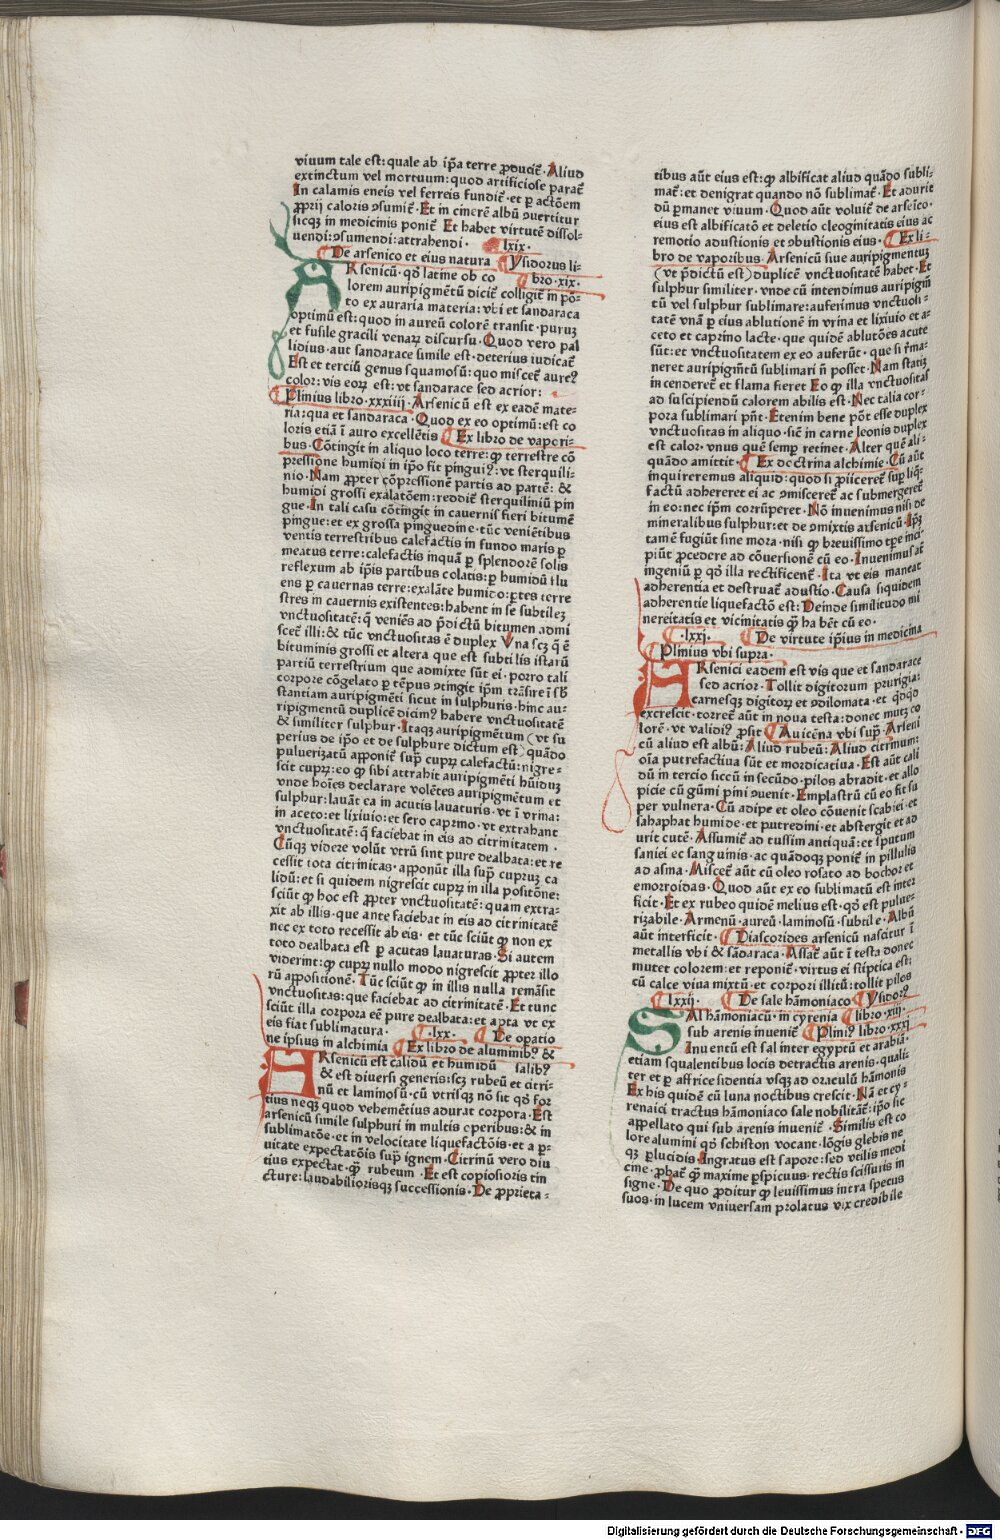 viuum tale est: quale ab ip̄a terre ꝓducit᷑. Aliud
extinctum vel mortuum: quod artificiose parat᷑
In calamis eneis vel ferreis fundit᷑. et ꝑ actōem
ꝓprij caloris ꝯsumit᷑. Et in cinerē albū ꝯuertitur
sicqꝫ in medicinis ponit᷑ Et habet virtutē dissol⸗
uendi: ꝯsumendi: attrahendi. lxix.
De arsenico et eius natura Ysidorus li⸗
ARsenicū. qd̄ latine ob co bro. xix.
lorem auripigmētū dicit᷑ colligit᷑ in pō⸗
to ex auraria materia: vbi et sandaraca
optimū est: quod in aureū colorē transit. puruꝫ
et fusile gracili venaꝝ discursu. Quod vero pal
lidius. aut sandarace simile est. deterius iudicat᷑
Est et terciū genus squamosū: quo miscet᷑ aureꝰ
color: vis eoꝝ est: vt sandarace sed acrior:
Plinius libro. xxxiiij. Arsenicū est ex eadē mate⸗
ria: qua et sandaraca. Quod ex eo optimū: est co
loris etiā ī auro excellētis Ex libro de vapori⸗
bus. Cōtingit in aliquo loco terre: ꝙ terrestre cō
pressione humidi in ip̄o fit pinguiꝰ: vt sterquili⸗
nio. Nam ꝓpter cōpressionē partis ad partē: &
humidi grossi exalatōem: reddit᷑ sterquiliniū pin
gue. In tali casu cōtingit in cauernis fieri bitumē
pingue: et ex grossa pinguedine. tūc veniētibus
ventis terrestribus calefactis in fundo maris ꝑ
meatus terre: calefactis inquā ꝑ splendorē solis
reflexum ab ip̄is partibus colatis: ꝑ humidū ilu
ens ꝑ cauernas terre: exalāte humido: ꝑtes terre
stres in cauernis existentes: habent in se subtileꝫ
vnctuositatē: q̄ veniēs ad p̄dictū bitumen admi
scet᷑ illi: & tūc vnctuositas ē duplex Vna scꝫ q̄ ē
bituminis grossi et altera que est subtilis istarū
partiū terrestrium que admixte sūt ei. porro tali
corpore cōgelato ꝑ tēpus ꝯtingit ip̄m trāsire ī sb̄
stantiam auripigmēti sicut in sulphuris. hinc au⸗
ripigmentū duplicē dicimꝰ habere vnctuositatē
& similiter sulphur. Itaqꝫ auripigmētum (vt su
perius de ip̄o et de sulphure dictum est) quādo
puluerizatū apponit᷑ suꝑ cupꝝ calefactū: nigre⸗
scit cupꝝ: eo ꝙ sibi attrahit auripigmēti hūiduꝫ
vnde hoīes declarare volētes auripigmētum et
sulphur: lauāt ea in acutis lauaturis. vt ī vrina:
in aceto: et lixiuio: et sero caprino. vt extrahant
vnctuositatē: q̄ faciebat in eis ad citrinitatem.
Cūqꝫ videre volūt vtrū sint pure dealbata: et re
cessit tota citrinitas. apponūt illa suꝑ cupruꝫ ca
lidū: et si quidem nigrescit cupꝝ in illa positōne:
sciūt ꝙ hoc est ꝓpter vnctuositatē: quam extra⸗
xit ab illis. que ante faciebat in eis ad citrinitatē
nec ex toto recessit ab eis. et tūc sciūt ꝙ non ex
toto dealbata est ꝑ acutas lauaturas. Si autem
viderint: ꝙ cupꝝ nullo modo nigrescit ꝓpter illo
rū appositionē. Tūc sciūt ꝙ in illis nulla remāsit
vnctuositas: que faciebat ad citrinitatē. Et tunc
sciūt illa corpora eē pure dealbata: et apta vt ex
eis fiat sublimatura. lxx. De opatio
ne ipsius in alchimia Ex libro de aluminibꝰ &
ARsenicū est calidū et humidū salibꝰ
& est diuersi generis: scꝫ rubeū et citri⸗
nū et laminosū. cū vtrisqꝫ nō sit qd̄ for
tius neqꝫ quod vehemētius adurat corpora. Est
arsenicū simile sulphuri in multis operibus: & in
sublimatōe. et in velocitate liquefactōis. et a ꝑ⸗
uitate expectatōis suꝑ ignem. Citrinū vero diu
tius expectat. ꝙ̄ rubeum. Et est copiosioris tin
cture: laudabiliorisqꝫ successionis. De ꝓprieta⸗
tibus aūt eius est: ꝙ albificat aliud quādo subli⸗
mat᷑: et denigrat quando nō sublimat᷑. Et adurit
dū ꝑmanet viuum. Quod aūt voluit᷑ de arseīco.
eius est albificatō et deletio cleoginitatis eius ac
remotio adustionis et ꝯbustionis eius. Ex li⸗
bro de vaporibus. Arsenicū siue auripigmentuꝫ
(vt p̄dictū est) duplicē vnctuositatē habet. Et
sulphur similiter. vnde cū intendimus auripigm̄
tū vel sulphur sublimare: auferimus vnctuosi⸗
tatē vnā ꝑ eius ablutionē in vrina et lixiuio et a⸗
ceto et caprino lacte. que quidē ablutōes acute
sūt: et vnctuositatem ex eo auferūt. que si r̄ma⸗
neret auripigm̄tū sublimari n̄ posset. Nam statiꝫ
incenderet᷑ et flama fieret Eo ꝙ illa vnctuositas
ad suscipiendū calorem abilis est. Nec talia cor⸗
pora sublimari pn̄t. Etenim bene pōt esse duplex
vnctuositas in aliquo. sic̄ in carne leonis duplex
est calor. vnus quē semꝑ retinet. Alter quē ali⸗
quādo amittit. Ex doctrina alchimie. Cū aūt
inquireremus aliquid: quod si ꝓiiceret᷑ suꝑ liqͥ⸗
factū adhereret ei ac ꝯmisceret᷑ ac submergeret᷑
in eo: nec ip̄m corrūperet. Nō inuenimus nisi de
mineralibus sulphur: et de ꝯmixtis arsenicū. Ip̄ꝫ
tamē fugiūt sine mora. nisi ꝙ breuissimo tꝑe inci⸗
piūt ꝓcedere ad cōuersionē cū eo. Inuenimus at᷑
ingeniū ꝑ qd̄ illa rectificent᷑. Ita vt eis maneat
adherentia et destruat᷑ adustio. Causa siquidem
adherentie liquefactō est: Deinde similitudo mi
nereitatis et vicinitatis ꝙ̄ ha bēt cū eo.
lxxj. De virtute ip̄ius in medicina
Plinius vbi supra.
ARsenici eadem est vis que et sandarace
sed acrior. Tollit digitorum prurigia:
carnesqꝫ digitoꝝ et ꝯdilomata. et qd̄qd̄
excrescit. torret᷑ aūt in noua testa: donec mutꝫ co
lorē. vt validiꝰ ꝓsit Auicēna vbi suꝑ. Arseni
cū aliud est albū: Aliud rubeū: Aliud citrinum:
oīa putrefactiua sūt et mordicatiua. Est aūt cali
dū in tercio siccū in secūdo. pilos abradit. et allo
picie cū gūmi pini ꝯuenit. Emplastrū cū eo fit su
per vulnera. Cū adipe et oleo cōuenit scabiei. et
sahaphat humide. et putredini. et abstergit et ad
urit cutē. Assumit᷑ ad tussim antiquā: et sputum
saniei ec sanguinis. ac quādoqꝫ ponit᷑ in pillulis
ad asma. Miscet᷑ aūt cū oleo rosato ad bochor et
emorroidas. Quod aūt ex eo sublimatū est inter
ficit. Et ex rubeo quidē melius est. qd̄ est pulue⸗
rizabile. Armenū. aureū. laminosū. subtile. Albū
aūt interficit. Diascorides arsenicū nascitur ī
metallis vbi & sādaraca. Assat᷑ aūt ī testa donec
mutet colorem: et reponit᷑. virtus ei stiptica est:
cū calce viua mixtū. et corpori illitū: tollit pilos
lxxij. De sale hāmoniaco Ysidorꝰ
SAl hāmoniacū. in cyrenia libro. xiij.
sub arenis inuenit᷑ Pliniꝰ libro. xxxj.
Inuentū est sal inter egyptū et arabiā.
etiam squalentibus locis detractis arenis. quali⸗
ter et ꝑ affrice sidentia vsqꝫ ad oraculū hāmonis
Ex his quidē cū luna noctibus crescit. Nā et cy⸗
renaici tractus hāmoniaco sale nobilitāt᷑: ip̄o sic
appellato qui sub arenis inuenit᷑. Similis est co
lore alumini qd̄ schiston vocant. lōgis glebis ne
qꝫ ꝑlucidis. Ingratus est sapore: sed vtilis medi
cine. ꝓbat᷑ ꝙ̄ maxime ꝑspicuus. rectis scissuris in
signe. De quo ꝓditur ꝙ leuissimus intra specus
suos. in lucem vniuersam prolatus vix credibile
Digitalisierung gefördert durch die Deutsche Forschungsgemeinschaft - DFG